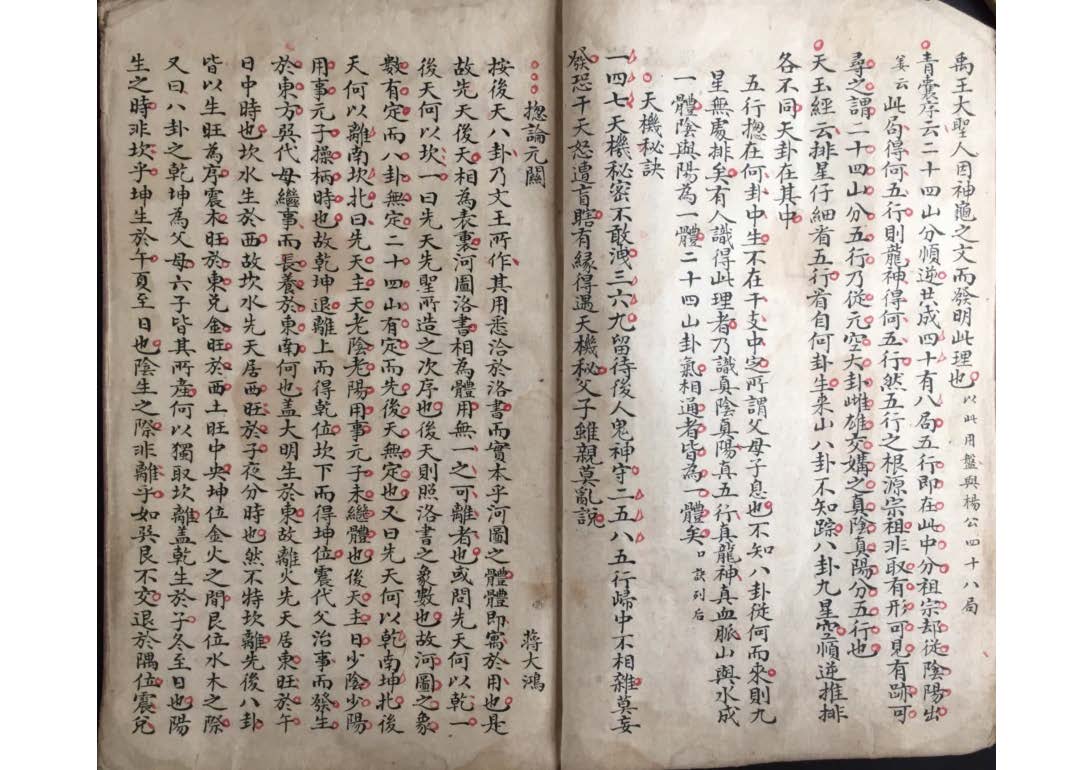 禹王大聖人因神龜之文而發明此理也以此用盤與楊公四十八局
青囊序云二十四山分順逆共成四十有八局五行即在此中分祖宗却從陰陽出
姜云此局得何五行則龍神得何五行然五行之根源宗祖非取有形可見有跡可
尋之謂二十四山分五行乃從元空大卦雌雄交媾之真陰真陽分五行也
天玉經云排星仔細看五行看自何卦生來山八卦不知踪八卦九星空順逆推排
各不同天卦在其中
五行揔在何卦中生不在干支中定所謂父母子息也不知八卦從何而來則九
星無處排矣有人識得此理者乃識真陰真陽真五行真龍神真血脈山與水成
一體陰與陽為一體二十四山卦氣相通者皆為一體矣口訣列后
天機秘訣
一四七天機秘密不敢洩三六九留待後人鬼神守二五八五行歸中不相雜莫妄
發恐干天怒遭盲瞎有緣得遇天機秘父子雖親莫亂說
揔論元關
蔣大鴻
按後天八卦乃文王所作其用悉洽於洛書而實本乎河圖之體體即寓於用也是
故先天後天相為表裏河圖洛書相為體用無一之可離者也或問先天何以乾一
後天何以坎一曰先天先聖所造之次序也後天則照洛書之象數也故河圖之象
數有定而八卦無定二十四山有定而先後天無定也又曰先天何以乾南坤北後
天何以離南坎北曰先天主天老陰老陽用事元子未繼體也後天主日少陰少陽
用事元子操柄時也故乾坤退離上而得乾位坎下而得坤位震代父治事而發生
於東方巽代母繼事而長養於東南何也蓋大明生於東故離火先天居東旺於午
日中時也坎水生於西故坎水先天居西旺於子夜分時也然不特坎離先後八卦
皆以生旺為序震木旺於東兌金旺於西土旺中央坤位金火之間艮位水木之際
又曰八卦之乾坤為父母六子皆其所產何以獨取坎離蓋乾生於子冬至日也陽
生之時非坎乎坤生於午夏至日也陰生之際非離乎如巽艮不交退於隅位震兌